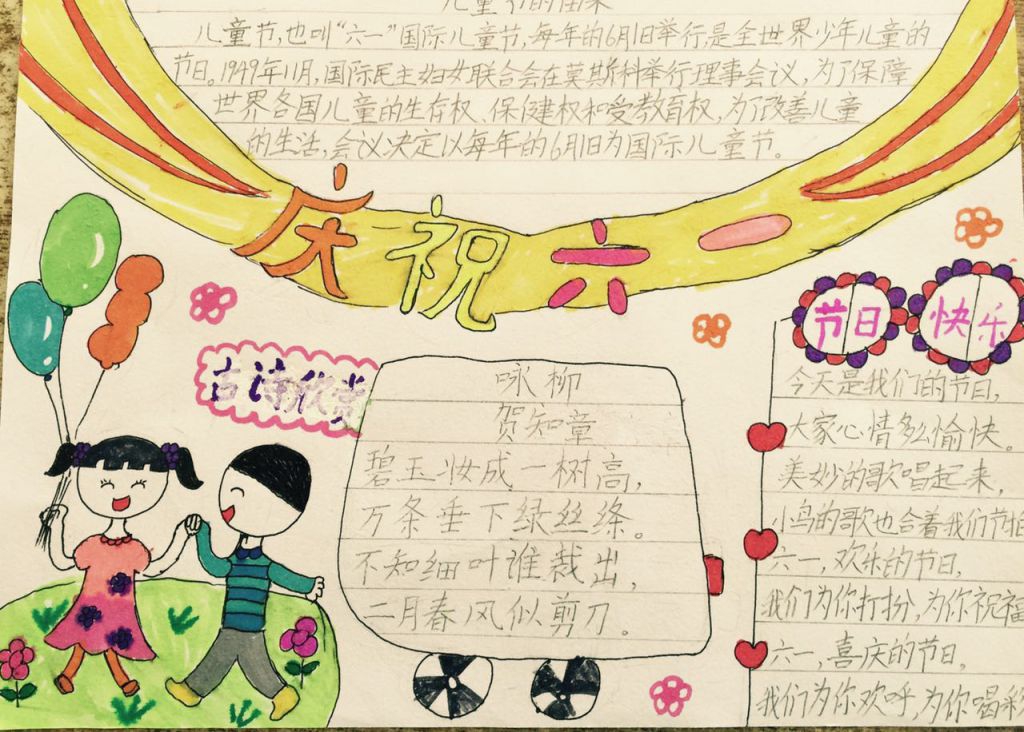 儿童节的由来
儿童节,也叫“六一”国际儿童节,每年的6月1日举行,是全世界少年儿童的
节日。1949年11月,国际民主妇女联合会在莫斯科举行理事会议,为了保障
世界各国儿童的生存权、保健权和受教育权,为了改善儿童
的生活,会议决定以每年的6月1日为国际儿童节。
庆祝六一
古诗欣赏
咏柳
贺知章
碧玉妆成一树高,
万条垂下绿丝绦。
不知细叶谁裁出,
二月春风似剪刀。
节日快乐
今天是我们的节日,
大家心情多么愉快。
美妙的歌唱起来,
小鸟的歌也合着我们节拍
六一,欢乐的节日,
我们为你打扮,为你祝福
六一,喜庆的节日,
我们为你欢呼,为你喝彩